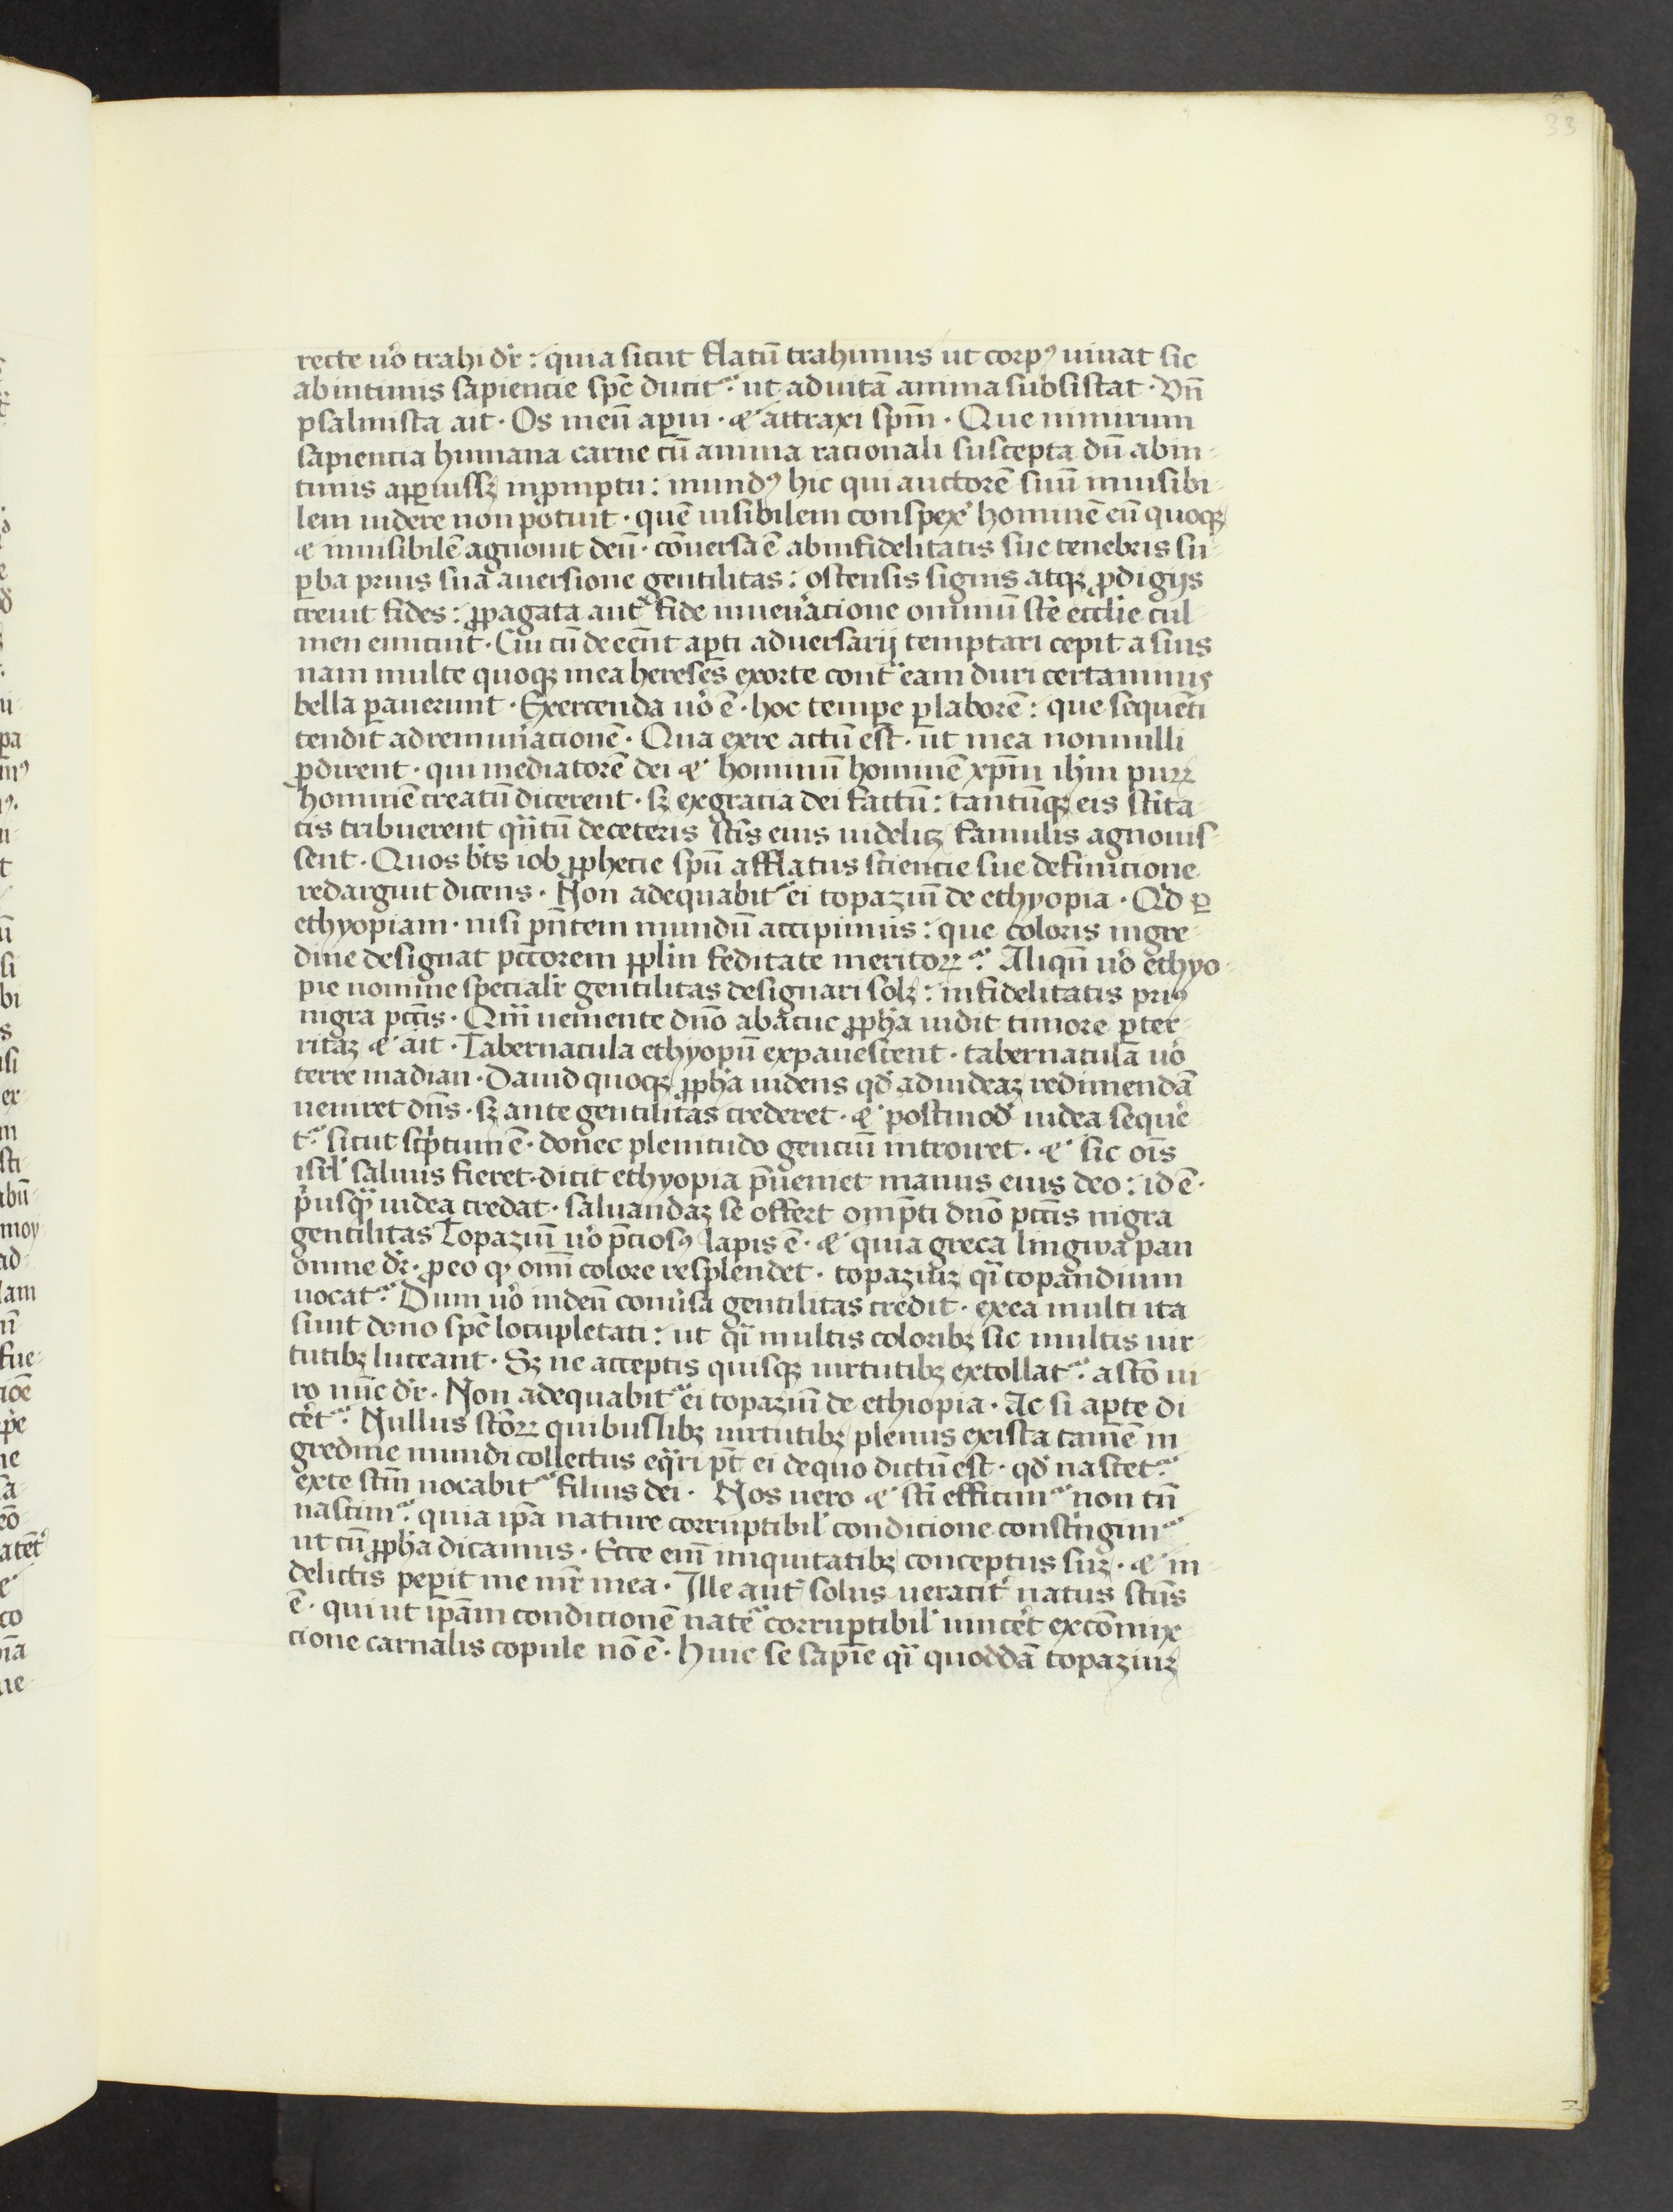 33
recte uo͛ trahi dr̃ : quia sicut flatū trahimus ut corpꝰ uiuat sic
ab intimis sapiencie spc̄ ducit᷑ ut ad uitā anima subsistat · Vn̄
psalmista ait · Os meū aꝑui · & attraxi spm̄ · Que nimirum
sapiencia humana carne cū anima racionali suscepta dū ab in-
timis aꝑuissꝫ in promptu : mundꝰ hic qui auctorē suū inuisibi-
lem uidere non potuit · quē uisibilem conspexͤ hominē eū quoqꝫ
& inuisibilē agnouit deū · cōuersa ē ab infidelitatis sue tenebris su
ꝑba prius sua auersione gentilitas : ostensis signis atqꝫ ꝓdigijs
creuit fides : ꝓpagata aut᷑ fide in ueneracione omniū sc̄e ecclīe cul-
men enituit · Cui cū deeēnt aꝑti aduersarij temptari cepit a suis
nam multe quoqꝫ in ea hereses exorte contᵃ eam duri certaminis
bella ꝑauerunt · Exercenda uo͛ ē · hoc tempe ꝑ laborē : que sequēti
tendit ad remun͛acionē · Qua ex re actū est · ut in ea nonnulli
ꝓdirent · qui mediatorē dei & hominū hominē xp̄m ih̄m puꝝ
hominē creatū dicerent · sꝫ ex gracia dei factū : tantūqꝫ eis sc̄ita-
tis tribuerent qᵃntū de ceteris sc̄is eius uidelicꝫ famulis agnouis-
sent · Quos bt̄s iob ꝓphecie spū afflatus sciencie sue definicione
redarguit dicens · Non adequabit᷑ ei topaziū de ethyopia · Qd ꝑ
ethyopiam · nisi pn̄tem mundū accipimus : que coloris nigre-
dine designat pctorem pplm̄ feditate meritoꝝ · Aliqn̄ uo͛ ethyo-
pie nomine specialr̄ gentilitas designari solꝫ : infidelitatis priꝰ
nigra pctīs · Qᵃm ueniente dn̄o abacuc ꝓph̄a uidit timore ꝑter-
ritaꝫ & ait · Tabernacula ethyopū expauescent · tabernacula uo͛
terre madian · Dauid quoqꝫ ꝓph̄a uidens qd̄ ad iudeaꝫ redimendā
ueniret dn̄s · sꝫ ante gentilitas crederet · & postmod̄ iudea seque͛
t᷑ · sicut sc̄ptum ē · donec plenitudo genciū introiret · & sic oīs
isrl̄ saluus fieret · dicit ethyopia p̄ueniet manus eius deo : id ē ·
p͛usqᵃ iudea credat · saluandaꝫ se offert omp̄ti dn̄o pctīs nigra
gentilitas Topaziū uo͛ p̄ciosꝰ lapis ē · & quia greca lingwa pan
omne dr̄ · ꝓ eo qꝫ omī colore resplendet · topaziuꝫ qᵃi topandium
uocat᷑ · Dum uo͛ in deū conu͛sa gentilitas credit · ex ea multi ita
sunt dono spc̄ locupletati : ut qᵃi multis coloribꝫ sic multis uir-
tutibꝫ luceant · Sꝫ ne acceptis quisqꝫ uirtutibꝫ extollat᷑ · a sc̄o ui-
ro nūc dr̄ · Non adequabit᷑ ei topaziū de ethiopia · Ac si aꝑte di
cet᷑ · Nullus sc̄oꝝ quibuslibꝫ uirtutibꝫ plenus ex ista tamē ni-
gredine mundi collectus eqᵃri pt̄ ei de quo dictū est · qd̄ nascet᷑
ex te sc̄m uocabit᷑ filius dei · Nos uero & sc̄i efficim᷑ non tn̄
nascim᷑ · quia ip̄a nature corruptibil̄ condicione const͛ngim᷑
ut cū ꝓph̄a dicamus · Ecce enī iniquitatibꝫ conceptus suꝫ · & in
delictis peꝑit me mr̄ mea · Ille aut᷑ solus ueracit͛ natus sc̄us
ē · qui ut ip̄am condicionē nat͛e corruptibil̄ uincet͛ ex cōmixc-
tione carnalis copule nō ē · Huic se sapīe qᵃi quoddā topaziuꝫ